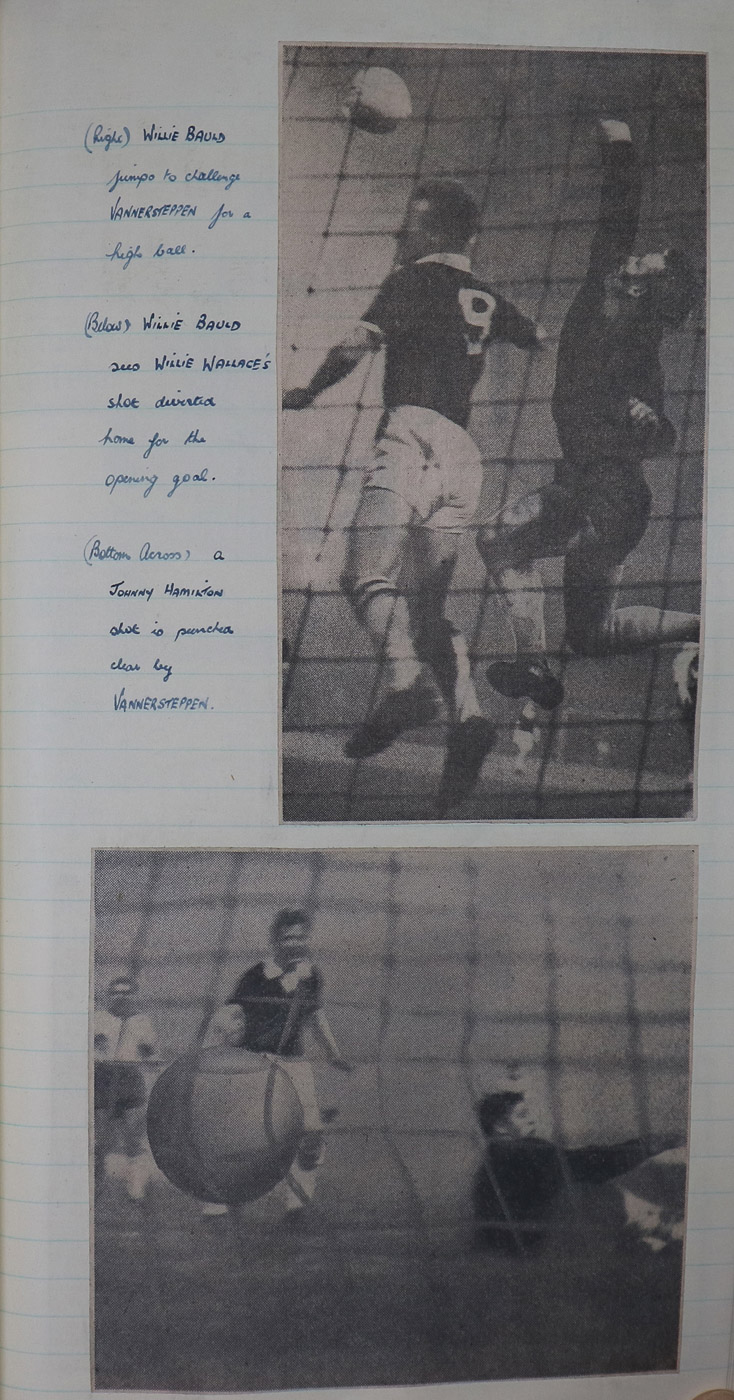 (Right) WILLIE BAULD
jumps to challenge
VANNERSTEPPEN for a
high ball.
(Below) WILLIE BAULD
sees WILLIE WALLACE'S
shot diverted
home for the
opening goal.
(Bottom Across) a
JOHNNY HAMILTON
shot is punched
clear by
VANNERSTEPPEN.
9